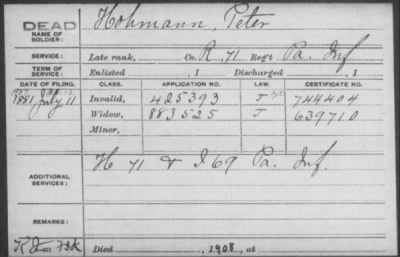 DEAD
NAME OF SOLDIER: Hohmann, Peter
SERVICE: Late rank, Co. R. 71 Reg't Pa. Inf
TERM OF SERVICE: Enlisted , 1 Discharged , 1
DATE OF FILING. CLASS. APPLICATION NO. LAW. CERTIFICATE NO.
1881 July 11 Invalid, 425393 J 744404
Widow, 883525 J 639710
Minor,
ADDITIONAL SERVICES: H 71 & I 69 Pa. Inf.
REMARKS:
Died , 1908, at